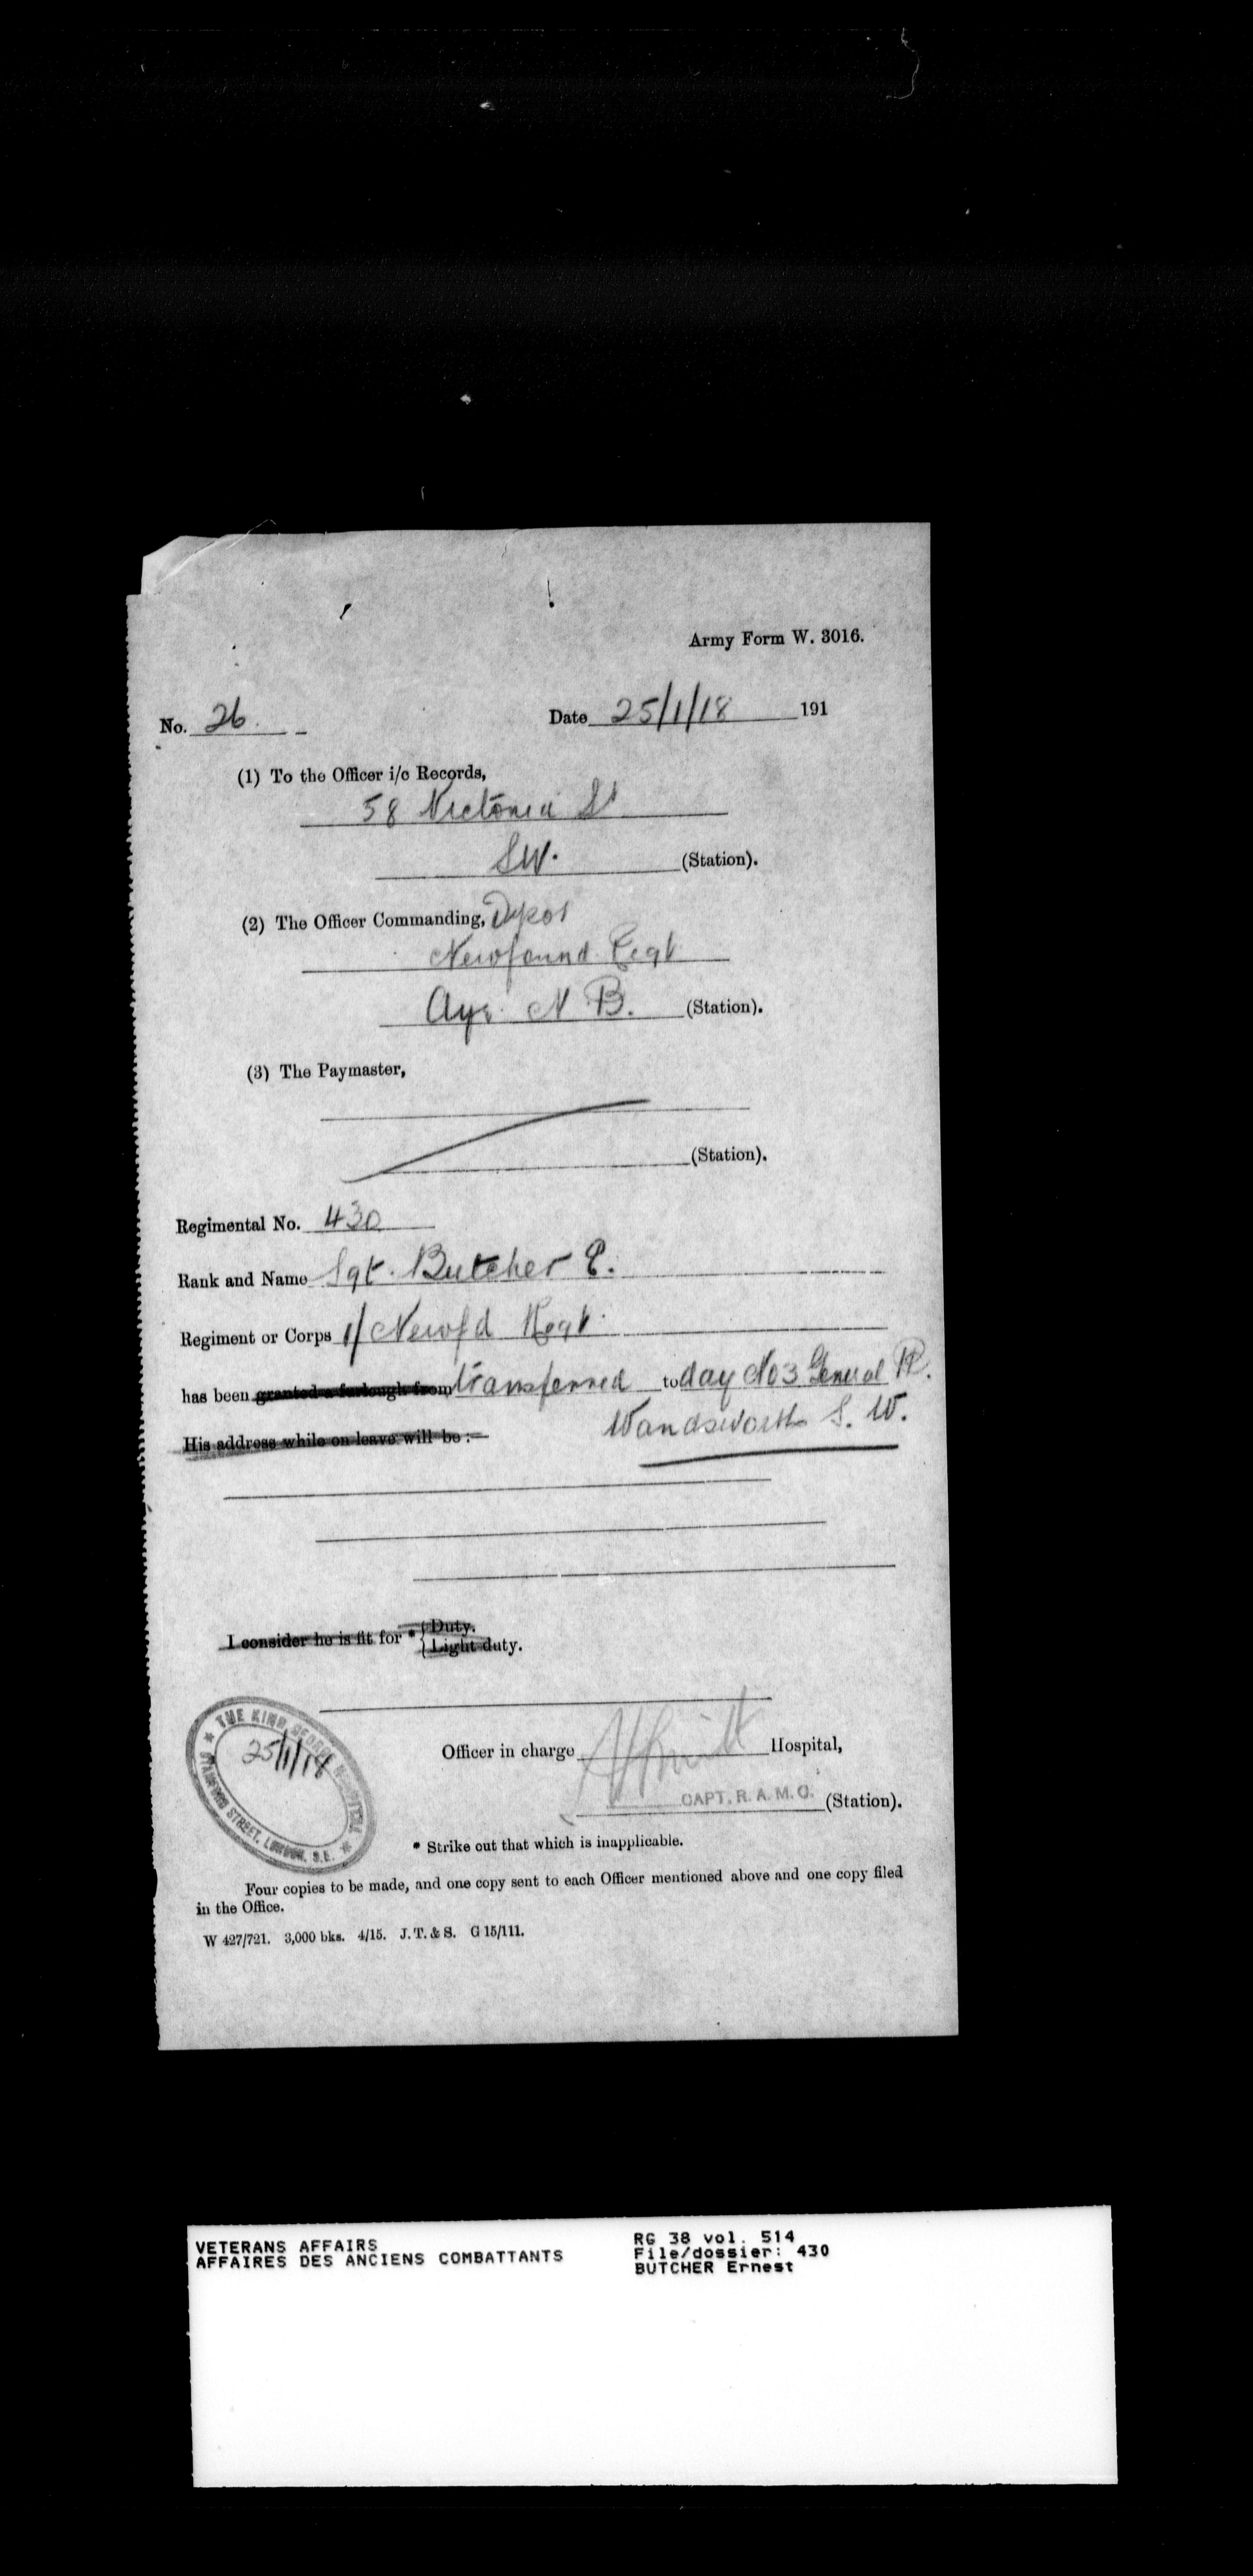 Army Form W. 3016.
No. 26. Date 25/1/18 191
(1) To the Officer i/c Records,
58 Victoria St
S.W.
(Station).
(2) The Officer Commanding, Depot
Newfound. Regt
Ayr N B. (Station).
(3) The Paymaster,
(Station).
Regimental No. 430
Rank and Name Sgt. Butcher E.
Regiment or Corps 1/ Newfd Regt.
has been granted a furlough from transferred to day No 3 General H.
Wandsworth S. W.
His address while on leave will be :—
I consider he is fit for * { Duty.
Light duty.
THE KING GEORGE HOSPITAL
25/1/18
STAMFORD STREET, LONDON, S.E.
Officer in charge Hospital,
CAPT. R. A. M. C. (Station).
* Strike out that which is inapplicable.
Four copies to be made, and one copy sent to each Officer mentioned above and one copy filed
in the Office.
W 427/721. 3,000 bks. 4/15. J. T. & S. G 15/111.
VETERANS AFFAIRS RG 38 vol. 514
AFFAIRES DES ANCIENS COMBATTANTS File/dossier: 430
BUTCHER Ernest